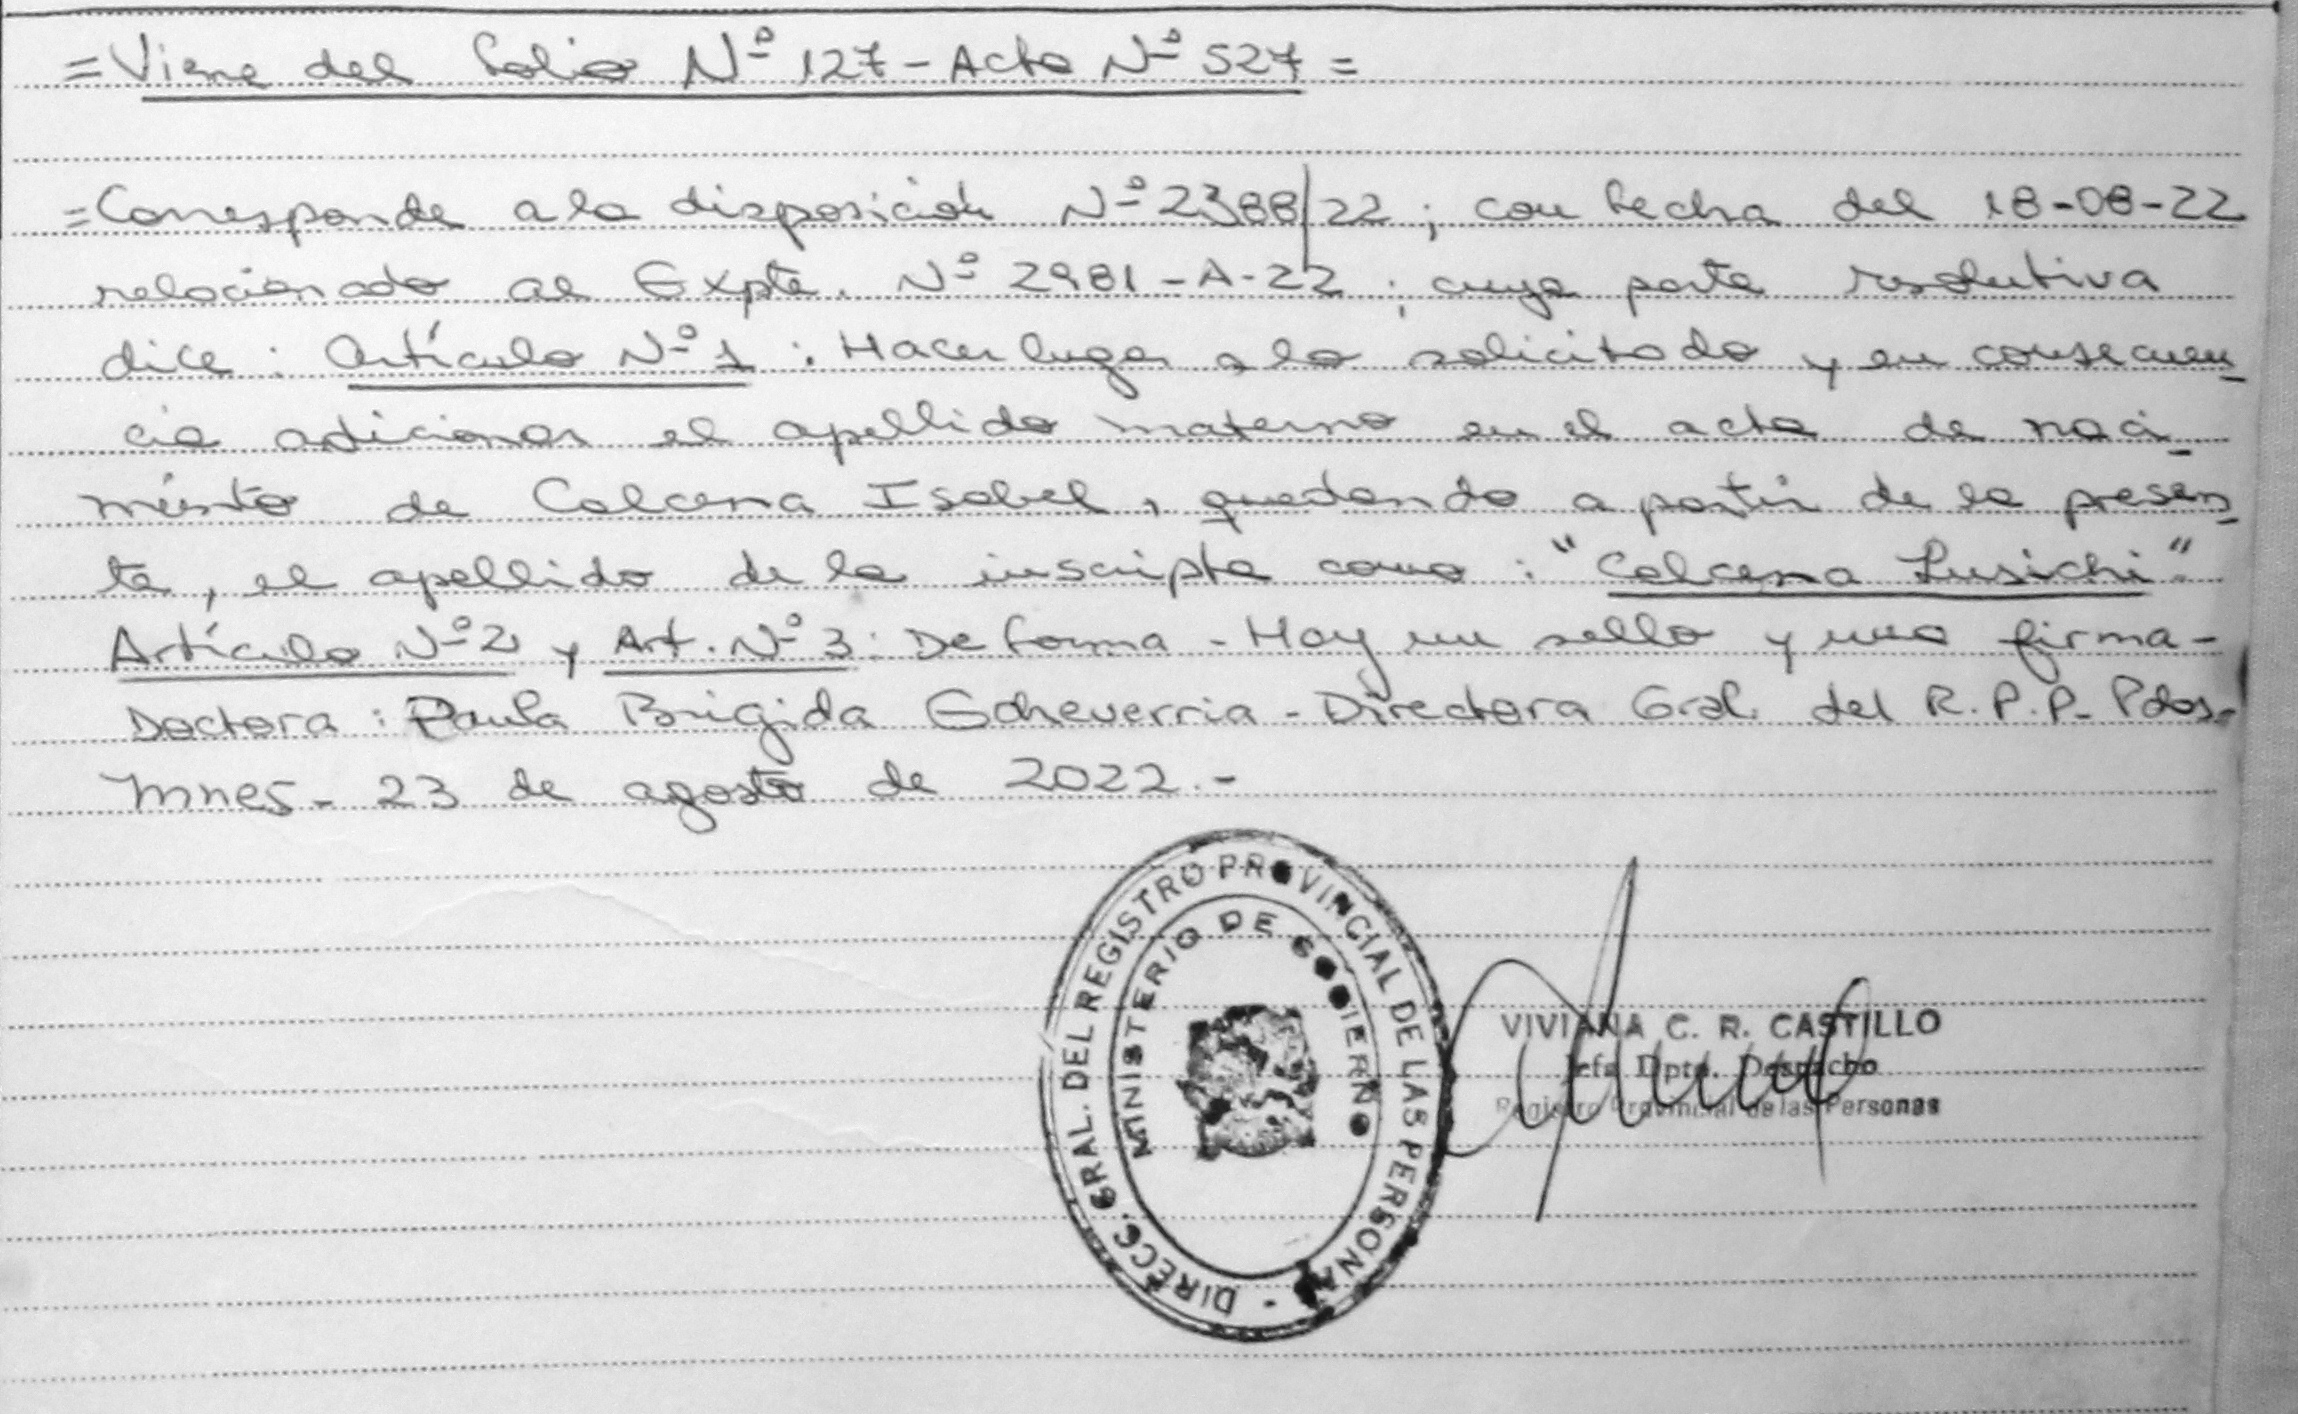 =Viene del Folio Nº 127-Acta Nº 527=
=Corresponde a la disposición Nº 2388/22; con fecha del 18-08-22
relacionado al Expte. Nº 2981-A-22; cuya parte resolutiva
dice: Artículo Nº 1: Hacer lugar a lo solicitado y en consecuen_
cia adicionar el apellido materno en el acta de naci_
miento de Colcena Isabel, quedando a partir de la presen_
te, el apellido de la inscripta como: "Colcena Lusichi"
Artículo Nº 2 y Art. Nº 3: De forma - Hay un sello y una firma-
Doctora: Paula Brigida Echeverria - Directora Gral. del R.P.P- Pdas=
Mnes- 23 de agosto de 2022.-
DIRECC. GRAL. DEL REGISTRO PROVINCIAL DE LAS PERSONAS -
MINISTERIO DE GOBIERNO
VIVIANA C. R. CASTILLO
Jefa Dpto. Despacho
Registro Provincial de las Personas